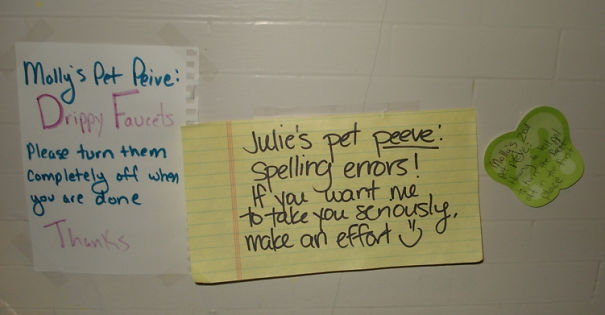 Molly's Pet Peive:
Drippy Faucets
Please turn them
completely off when
you are done
Thanks
Julie's pet peeve:
spelling errors!
If you want me
to take you seriously,
make an effort
Molly's 2nd